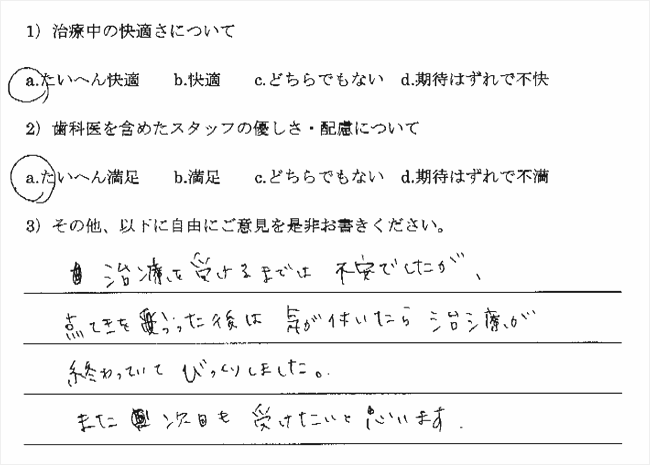 1）治療中の快適さについて
a.たいへん快適 b.快適 c.どちらでもない d.期待はずれで不快
2）歯科医を含めたスタッフの優しさ・配慮について
a.たいへん満足 b.満足 c.どちらでもない d.期待はずれで不満
3）その他、以下に自由にご意見を是非お書きください。
治療を受けるまでは 不安でしたが、
点てきを った後は 気が付いたら 治療が
終わっていて びっくりしました。
また 次回も 受けたいと思います.